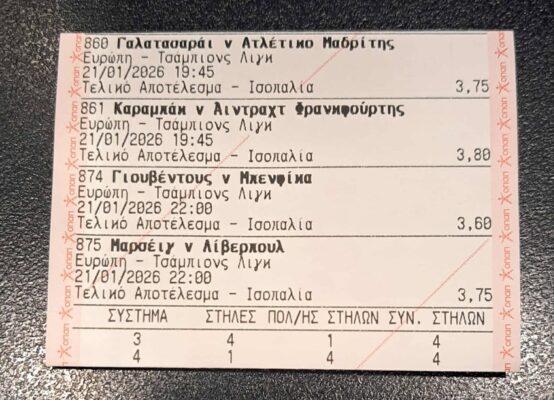 860 Γαλατασαράι v Ατλέτικο Μαδρίτης
Ευρώπη - Τσάμπιονς Λιγκ
21/01/2026 19:45
Τελικό Αποτέλεσμα - Ισοπαλία 3,75
861 Καραμπάκ v Άιντραχτ Φρανκφούρτης
Ευρώπη - Τσάμπιονς Λιγκ
21/01/2026 19:45
Τελικό Αποτέλεσμα - Ισοπαλία 3,80
874 Γιουβέντους v Μπενφίκα
Ευρώπη - Τσάμπιονς Λιγκ
21/01/2026 22:00
Τελικό Αποτέλεσμα - Ισοπαλία 3,60
875 Μαρσέιγ v Λίβερπουλ
Ευρώπη - Τσάμπιονς Λιγκ
21/01/2026 22:00
Τελικό Αποτέλεσμα - Ισοπαλία 3,75
ΣΥΣΤΗΜΑ ΣΤΗΛΕΣ ΠΟΛ/ΗΣ ΣΤΗΛΩΝ ΣΥΝ. ΣΤΗΛΩΝ
3 4 1 4
4 1 4 4